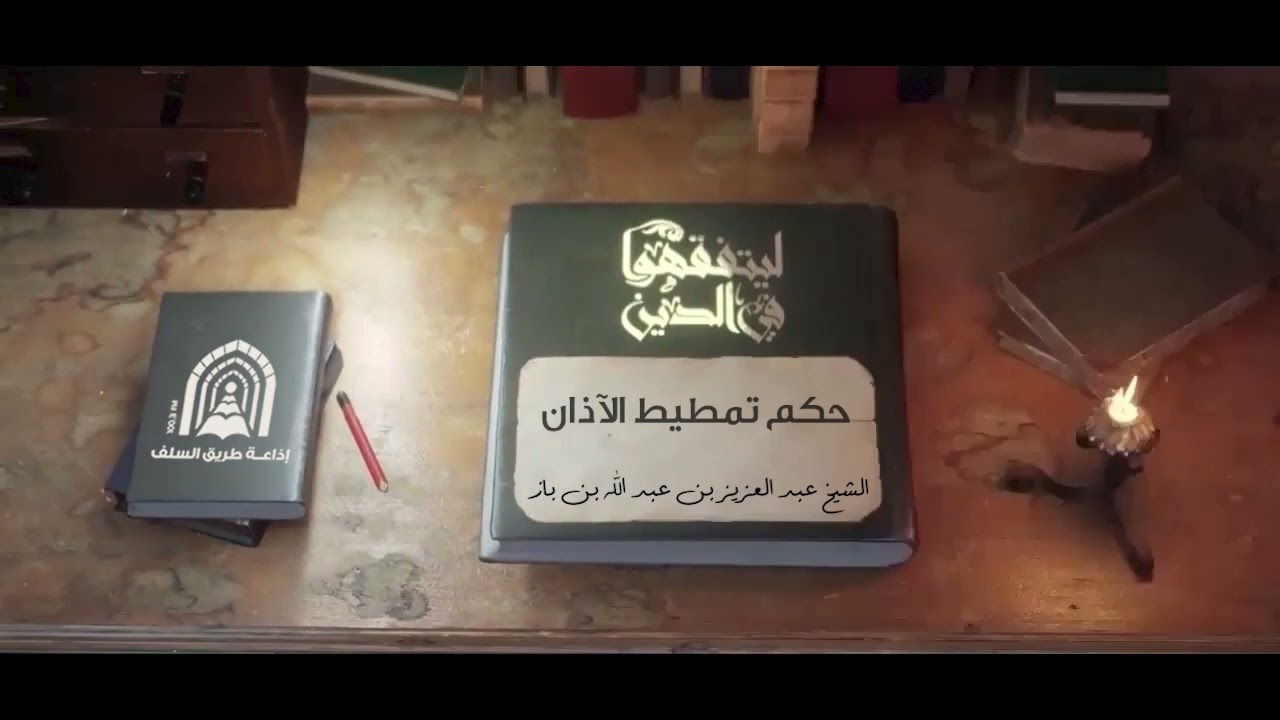 ليتفقهوا
في الدين
حكم تمطيط الآذان
الشيخ عبد العزيز بن عبد الله بن باز
100.3 FM
إذاعـة طريق السلف